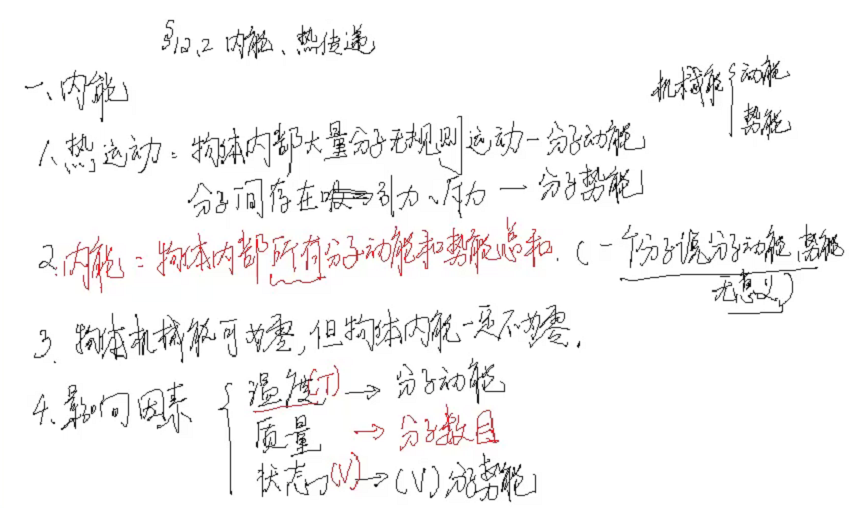 §12.2 内能、热传递
一、内能
机械能{动能
势能
1.热运动：物体内部大量分子无规则运动—分子动能
分子间存在引力、斥力—分子势能
2.内能：物体内部所有分子动能和势能总和.（一个分子谈分子动能、势能
无意义）
3.物体机械能可为零,但物体内能一定不为零.
4.影响因素{温度(T)→分子动能
质量→分子数目
状态(V)→(V)分子势能